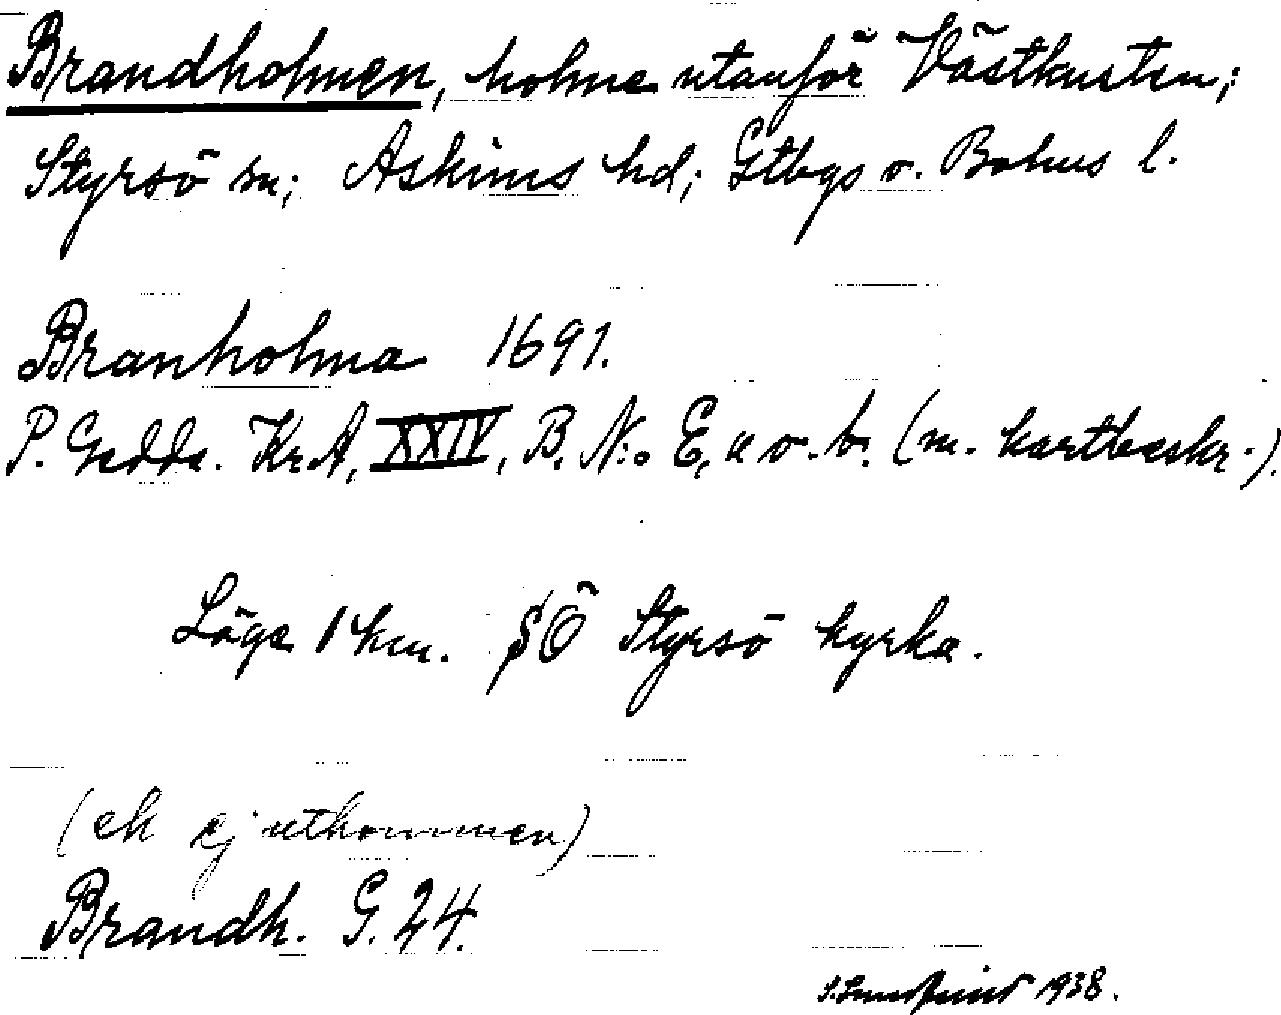 Brandholmen, holme utanför Västkusten;
Styrsö sn; Askims hd; Gtbgs o. Bohus l.
Branholma 1691.
P. Gedda. Kr.A, XXIV, B. N:o E, a o. b. (m. kartbeskr.).
Läge 1 km. SÖ Styrsö kyrka.
(ek ej utkommen)
Brandh. G. 24.
1938.